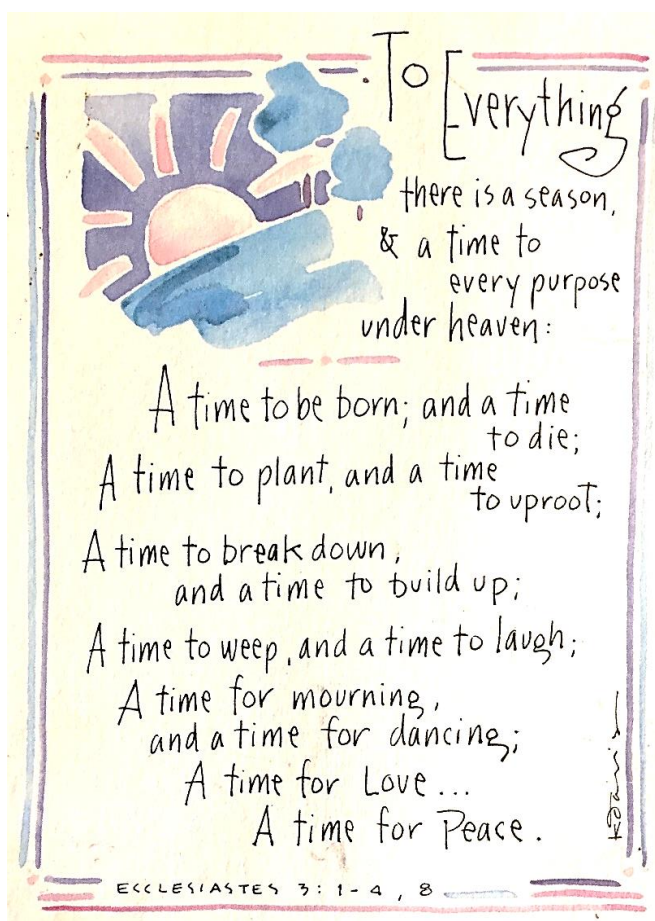 To Everything
there is a season,
& a time to
every purpose
under heaven:
A time to be born; and a time
to die;
A time to plant, and a time
to uproot;
A time to break down,
and a time to build up;
A time to weep, and a time to laugh;
A time for mourning,
and a time for dancing;
A time for Love...
A time for Peace.
ECCLESIASTES 3:1-4, 8